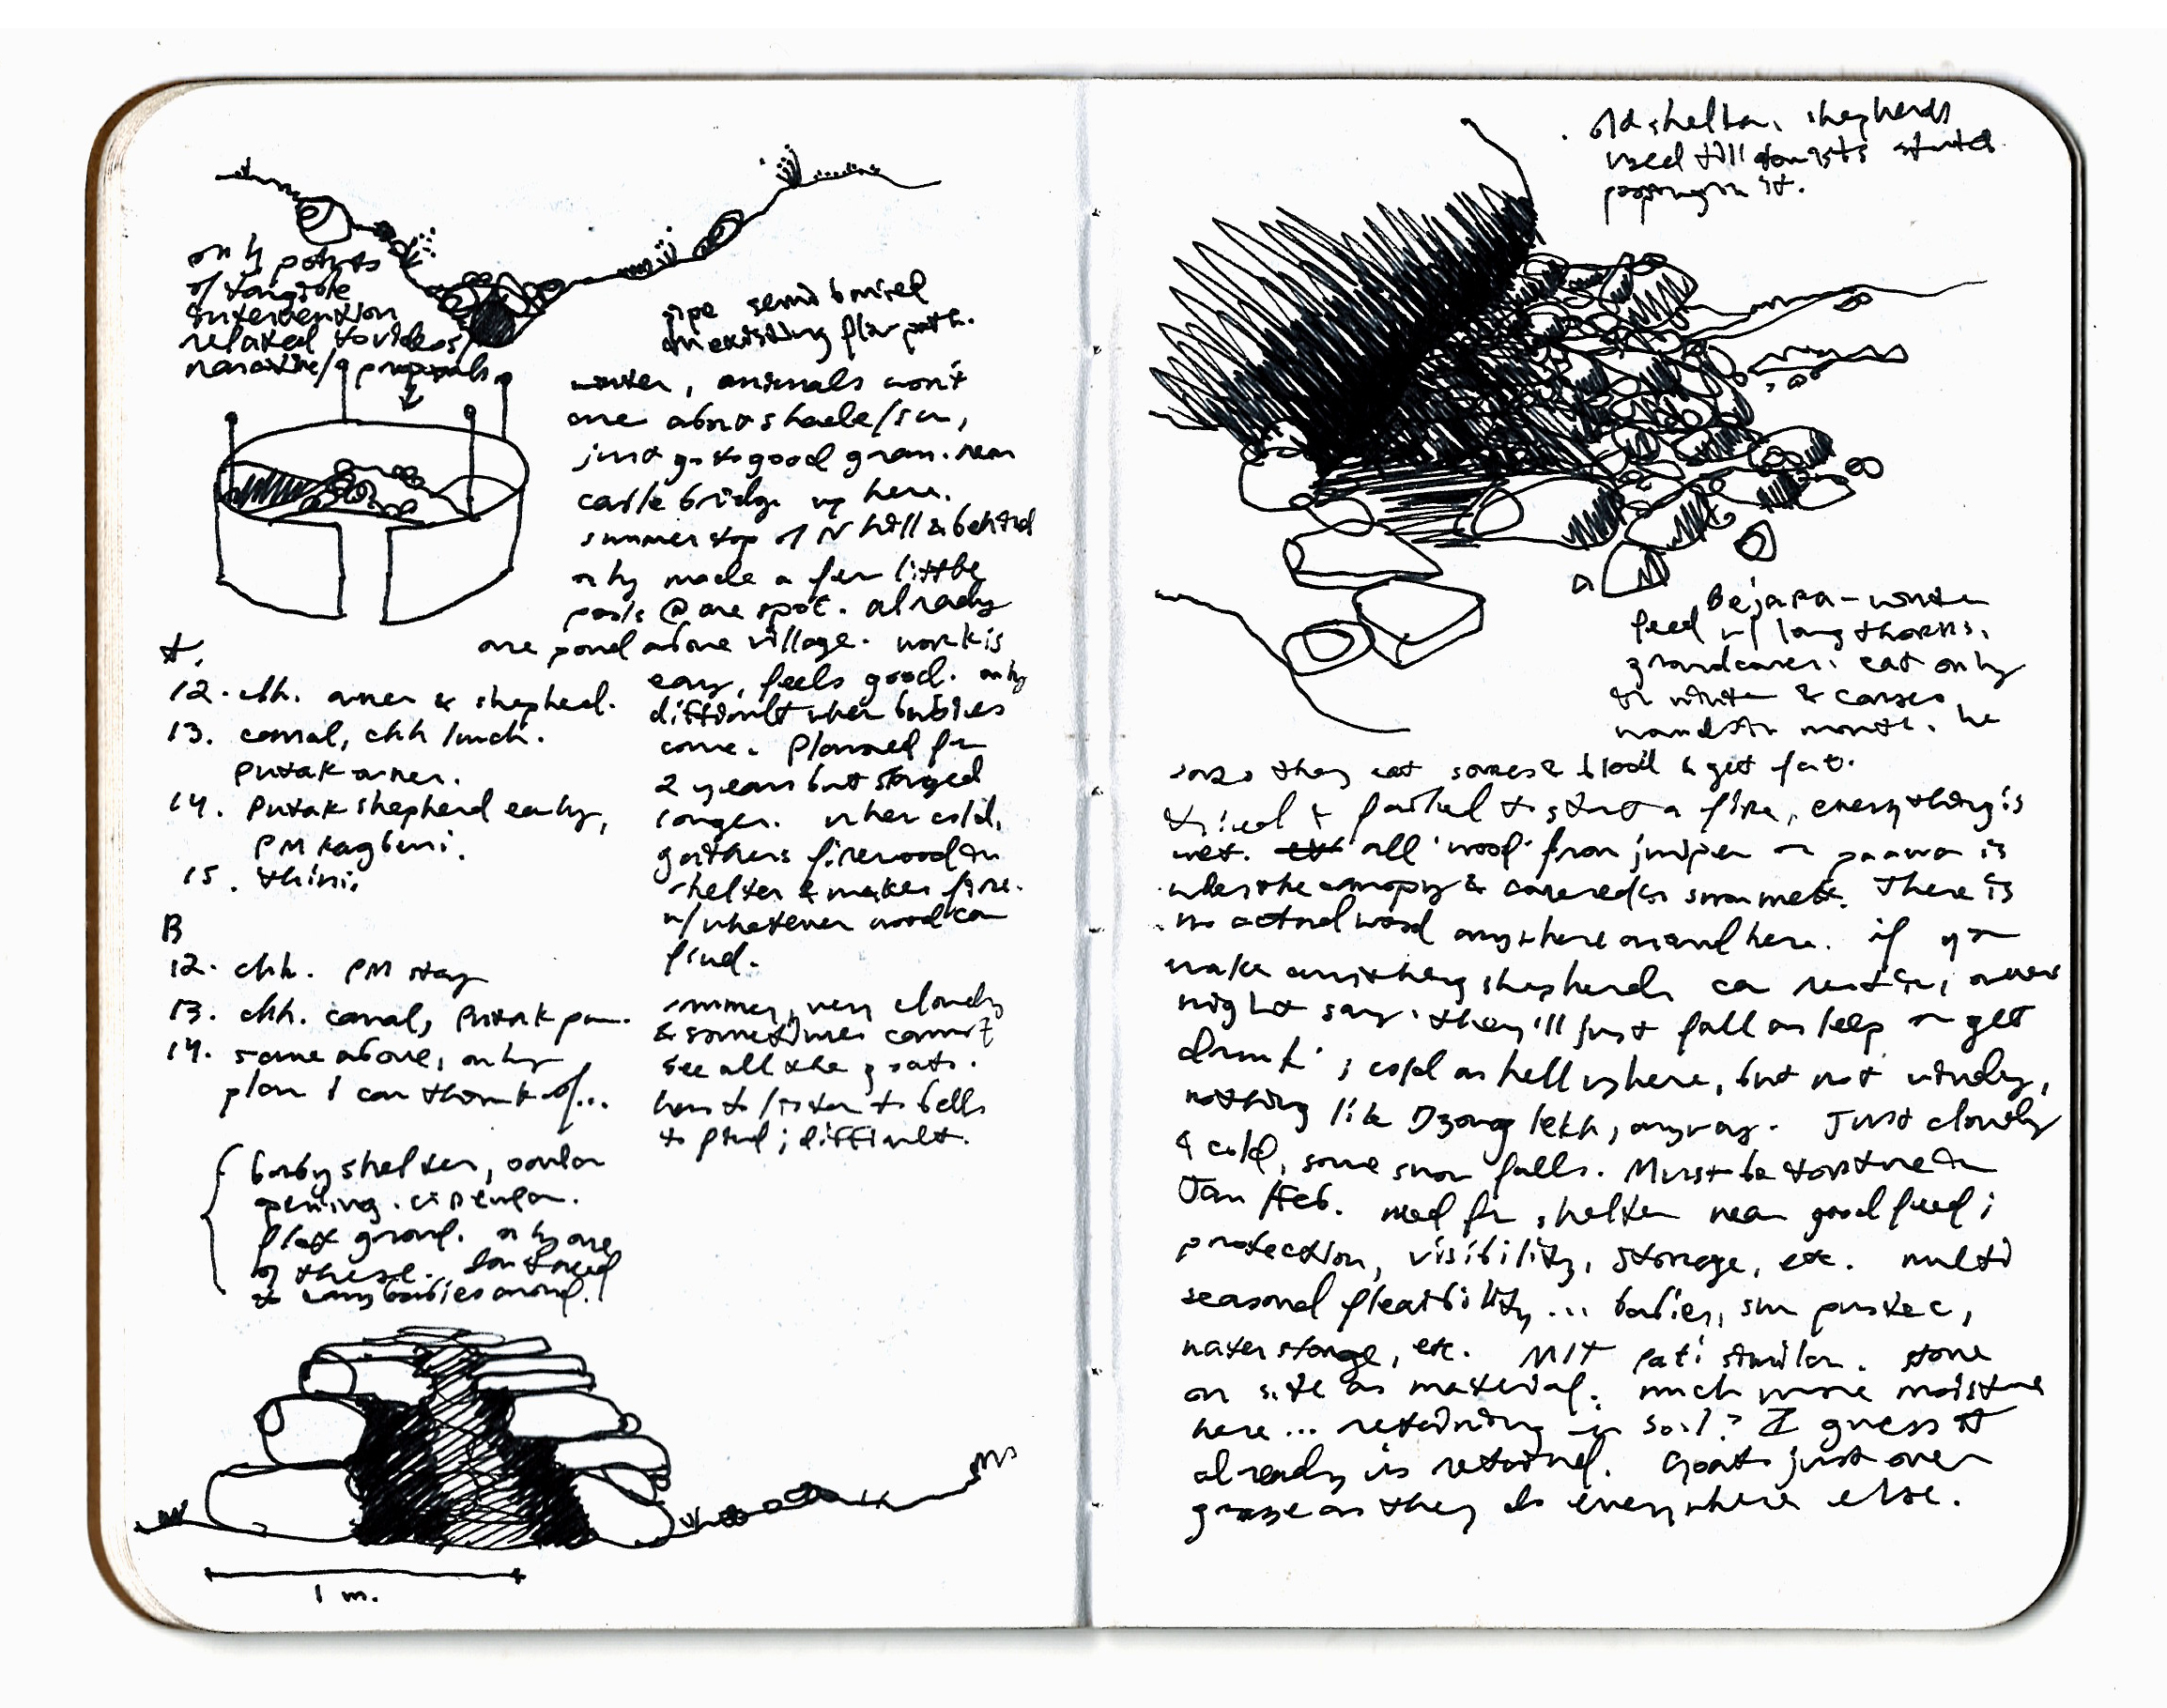 only points
of tangible
intervention
related to videos/
narative/proposals
pipe semi buried
in existing flow path.
winter, animals won't
care about shade/sun,
just go to good grass. near
castle bridge up here.
summer top of N hill & behind
only made a few little
pools @ one spot. already
one pond above village. work is
easy, feels good. only
difficult when babies
come. Planned for
2 years but stayed
longer. when cold,
gathers firewood in
shelter & makes fire.
w/ whatever wood can
find.
summer, very cloudy
& sometimes cannot
see all the goats.
have to listen to bells
to find; difficult.
t.
12. chh. amer & shepherd.
13. corral, chh lunch.
Putak amer.
14. Putak shepherd early,
PM Kagbeni.
15. thini.
B
12. chh. PM stay
13. chh. canal, Putak pm.
14. same above, only
plan I can think of...
baby shelter,
opening. circular.
flat ground. only one
of these. don't need
to carry babies around.
1 m.
old shelter, shepherds
used till tourists started
pooping in it.
Bejara - winter
feed w/ long thorns.
eat only
in winter & causes
month. he
says they eat some blood & get fat.
tried & failed to start a fire, everything is
wet. all 'wood' from juniper or is
under the canopy & covered in snow melt. There is
no actual wood anywhere around here. if you
make anything shepherds can rest in, owner
might say 'they'll just fall asleep or get
drunk'; cold as hell up here, but not windy,
nothing like Dzong lekh, anyway. Just cloudy
& cold, some snow falls. Must be torture in
Jan/Feb. need for shelter near good feed;
protection, visibility, storage, etc. multi
seasonal flexibility... babies, sun protec,
water storage, etc. MIT pati similar. stone
on site as material. much more moisture
here... retaining in soil? I guess it
already is retained. Goats just over
graze as they do everywhere else.